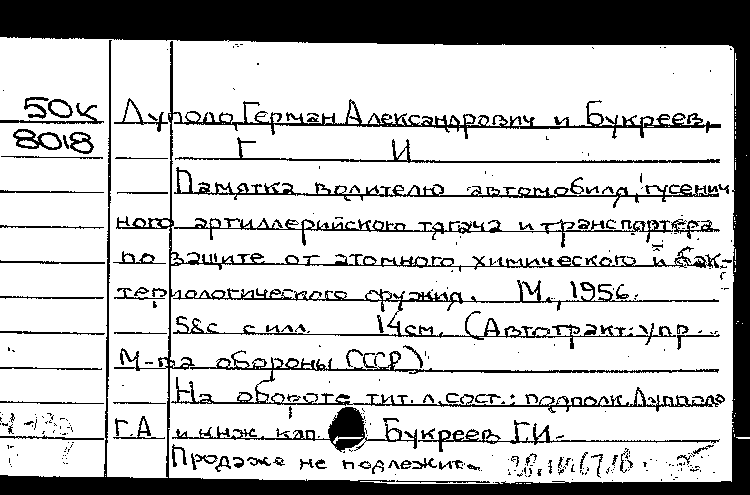 50к Луппло, Герман Александрович и Букреев,
8018 Г И
Памятка водителю автомобиля, гусенич-
ного артиллерийского тягача и транспортера
по защите от атомного, химического и бак-
териологического оружия. М., 1956.
58с с илл. 14см. (Автотракт. упр.
М-ва обороны СССР)
На обороте тит. л. сост.: подполк.
Г.А и инж. кап. Букреев Г.И.
Продаже не подлежит.